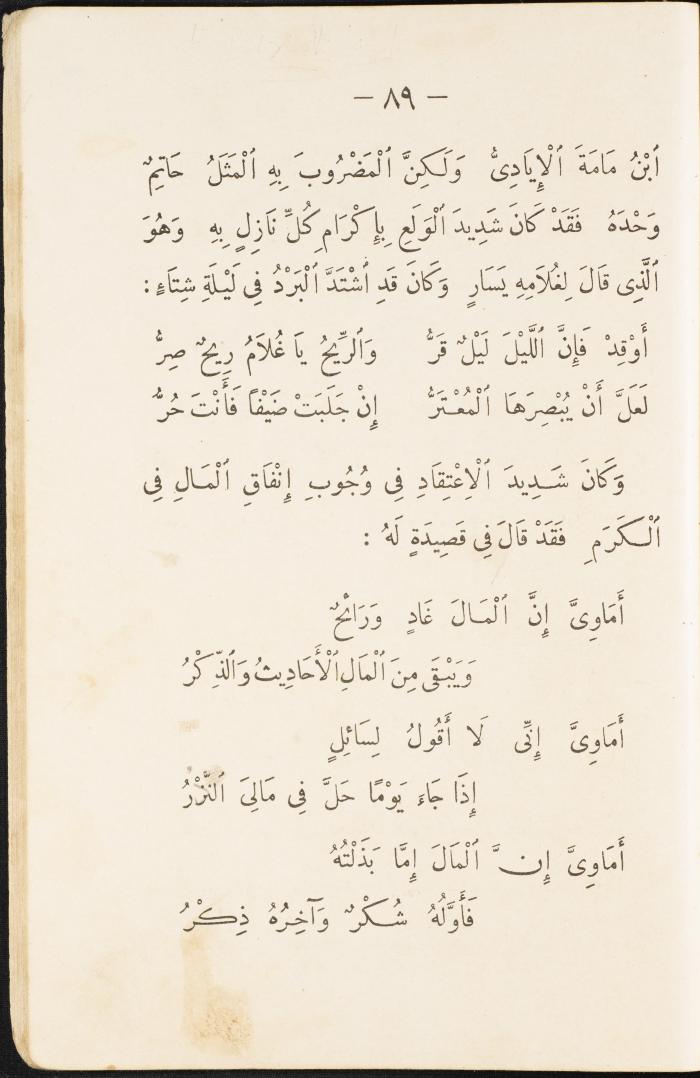 — ٨٩ —
ٱبْنُ مَامَةَ ٱلْإِيَادِىُّ وَلَـكِنَّ ٱلْمَضْرُوبَ بِهِ ٱلْمَثَلُ حَاتِمٌ
وَحْدَهُ فَقَدْ كَانَ شَدِيدَ ٱلْوَلَعِ بِإِكْرَامِ كُلِّ نَازِلٍ بِهِ وَهُوَ
ٱلَّذِى قَالَ لِغُلَامِهِ يَسَارٍ وَكَانَ قَدِ ٱشْتَدَّ ٱلْبَرْدُ فِى لَيْلَةِ شِتَاءٍ :
أَوْقِدْ فَإِنَّ ٱللَّيْلَ لَيْلٌ قَرُّ وَٱلرِّيحُ يَا غُلَامُ رِيحٌ صِرُّ
لَعَلَّ أَنْ يُبْصِرَهَا ٱلْمُعْتَرُّ إِنْ جَلَبَتْ ضَيْفًا فَأَنْتَ حُرُّ
وَكَانَ شَـدِيدَ ٱلْاِعْتِقَادِ فِى وُجُوبِ إِنْفَاقِ ٱلْمَـالِ فِى
ٱلْـكَرَمِ فَقَدْ قَالَ فِى قَصِيدَةٍ لَهُ :
أَمَاوِىَّ إِنَّ ٱلْمَـالَ غَادٍ وَرَائِحٌ
وَيَبْقَى مِنَ ٱلْمَالِ ٱلْأَحَادِيثُ وَٱلذِّكْرُ
أَمَاوِىَّ إِنِّى لَا أَقُولُ لِسَائِلٍ
إِذَا جَاءَ يَوْمًا حَلَّ فِى مَالِىَ ٱلنَّزْرُ
أَمَاوِىَّ إِنَّ ٱلْمَالَ إِمَّا بَذَلْتُهُ
فَأَوَّلُهُ شُـكْرٌ وَآخِرُهُ ذِكْرُ